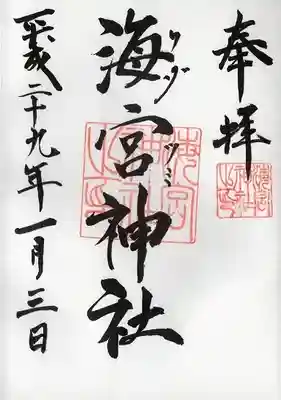 奉拝
海宮神社
ワダツミ
平成二十九年一月三日